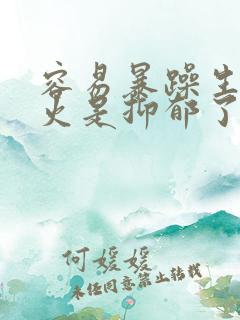 容易暴躁生
火是抑郁了
何媛媛
未经同意禁止转载